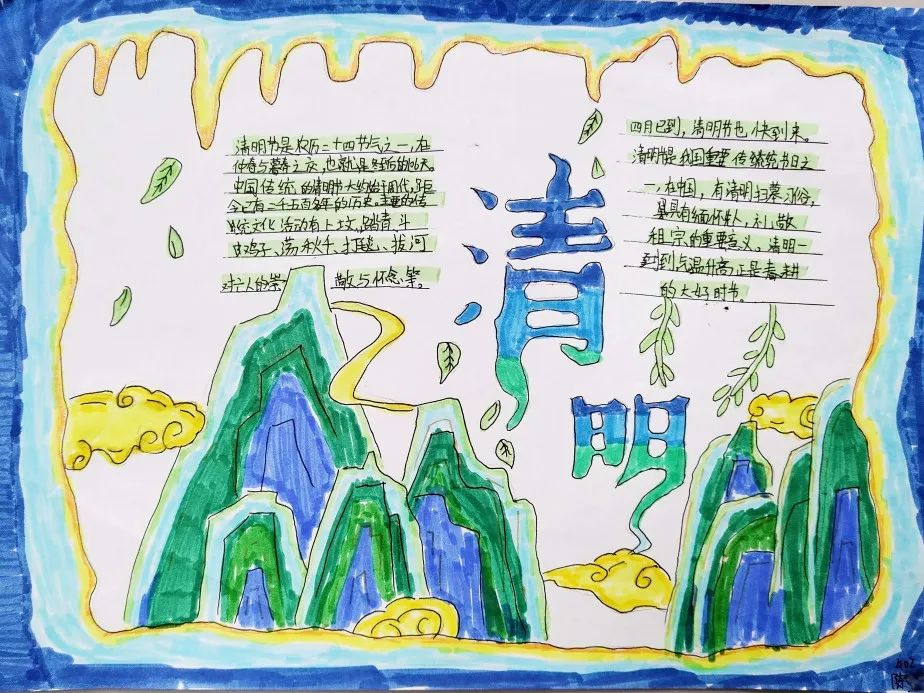 清明节是农历二十四节气之一,在
仲春与暮春之交,也就是冬至后的106天。
中国传统的清明节大约始于周代,距
今已有二千五百多年的历史。主要的传
统文化活动有上坟,踏青、斗
鸡子、荡秋千、打毯、拔河
对亡人的崇 敬与怀念等。
清
明
四月已到,清明节也快到来。
清明节是我国重要传统节日之
一,在中国,有清明扫墓习俗,
是具有缅怀先人,敬
祖宗的重要意义,清明一
到到气温升高,正是春耕
的大好时节。
402